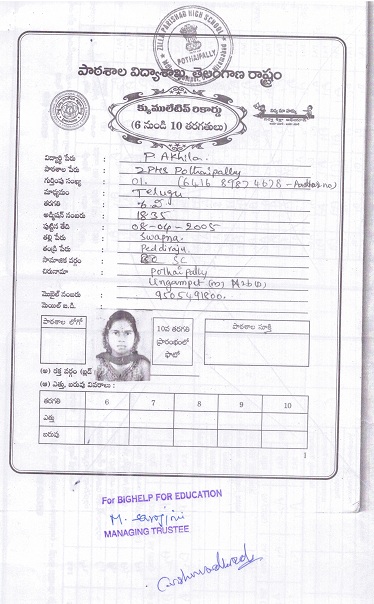 ZILLA PARISHAD HIGH SCHOOL
POTHAIPALLY
పాఠశాల విద్యాశాఖ, తెలంగాణ రాష్ట్రం
క్యుములేటివ్ రికార్డు
(6 నుండి 10 తరగతులు)
విద్యార్థి పేరు : P. Akhila.
పాఠశాల పేరు : ZPHS Pothaipally
గుర్తింపు సంఖ్య : 01.
మాధ్యమం : Telugu
తరగతి :
అడ్మిషన్ నంబరు : 1835
పుట్టిన తేది : 08-04-2005
తల్లి పేరు : Swapna.
తండ్రి పేరు : Peddiraju.
సామాజిక వర్గం : SC
చిరునామా : Pothaipally
మొబైల్ నంబరు : 9505491800.
మెయిల్ ఐ.డి. :
పాఠశాల లోగో
10వ తరగతి ప్రారంభంలో ఫొటో
పాఠశాల సూక్తి
(అ) రక్త వర్గం (బ్లడ్
(ఆ) ఎత్తు, బరువు వివరాలు :
తరగతి 6 7 8 9 10
ఎత్తు
బరువు
1
For BIGHELP FOR EDUCATION
M. Sarojini
MANAGING TRUSTEE